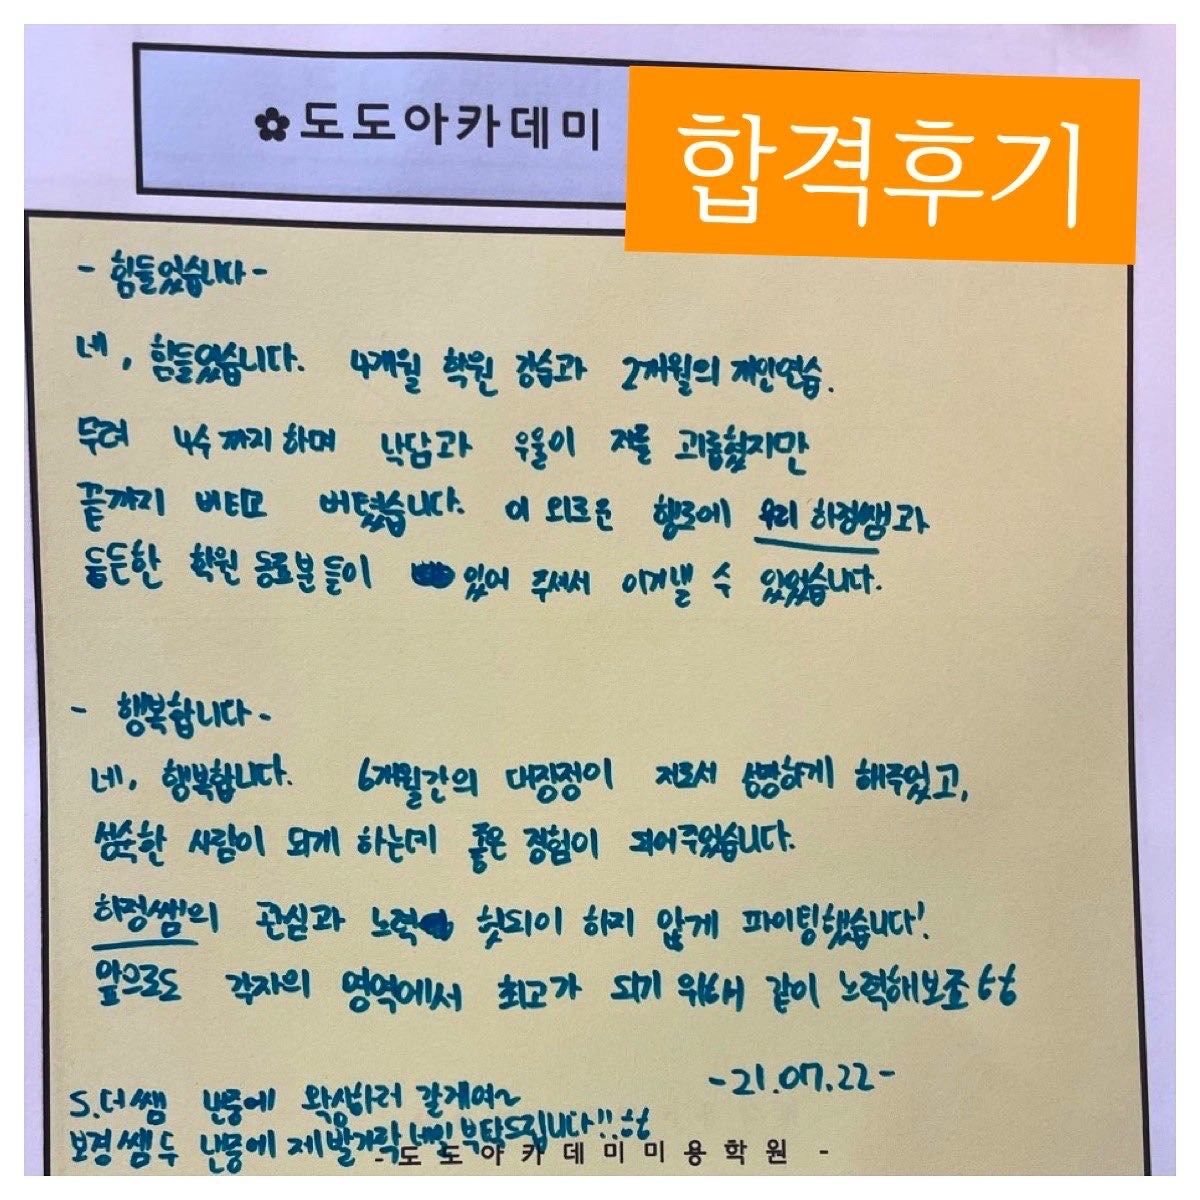 ✿도도아카데미
합격후기
- 힘들었습니다 -
네, 힘들었습니다. 4개월 학원 강습과 2개월의 개인연습.
무려 4수까지 하며 낙담과 우울이 저를 괴롭혔지만
끝까지 버티고 버텼습니다. 이 외로운 행로에 우리 하정쌤과
든든한 학원 동료분들이 있어 주셔서 이겨낼 수 있었습니다.
- 행복합니다 -
네, 행복합니다. 6개월간의 대장정이 저로서 성장하게 해주었고,
성숙한 사람이 되게 하는데 좋은 경험이 되어주었습니다.
하정쌤의 관심과 노력 헛되이 하지 않게 파이팅했습니다!
앞으로도 각자의 영역에서 최고가 되기 위해 같이 노력해보죠 ㅎㅎ
-21.07.22-
S.더쌤 난중에 왁싱하러 갈게여~
보경쌤두 난중에 제 발가락 네일 부탁드립니다!!ㅎㅎ
- 도도아카데미미용학원 -